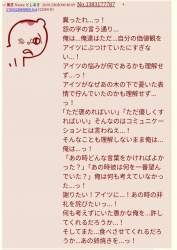 無念 Name としあき 20/01/26(日)00:42:09 No.1383177787
糞ったれ…っ！
怒の字の言う通り…
俺は…俺達はただ…自分の価値観を
アイツにぶつけていたにすぎな
い…！
アイツの悩みが何であるかも理解せ
ず…っ！
アイツがなぜあの木の下で憂いた表
情で佇んでいたのかも理解せず
…っ！
「ただ褒めればいい」「ただ優しくす
ればいい」そんなのはコミュニケー
ションとは言わねえ…！
そんなことも理解しないまま俺は…
俺は…っ！
「あの時どんな言葉をかければよか
った？」「あの時彼は何を一番望ん
でいた？」俺は何も考えていなかっ
た…っ！
謝りたい！アイツに…！あの時の非
礼を詫びたいっ…！
何も考えずにいた愚かな俺を…許し
てくれるだろうか…！
そしてまた…食べさせてくれるだろ
うか…あの卵焼きを…っ！